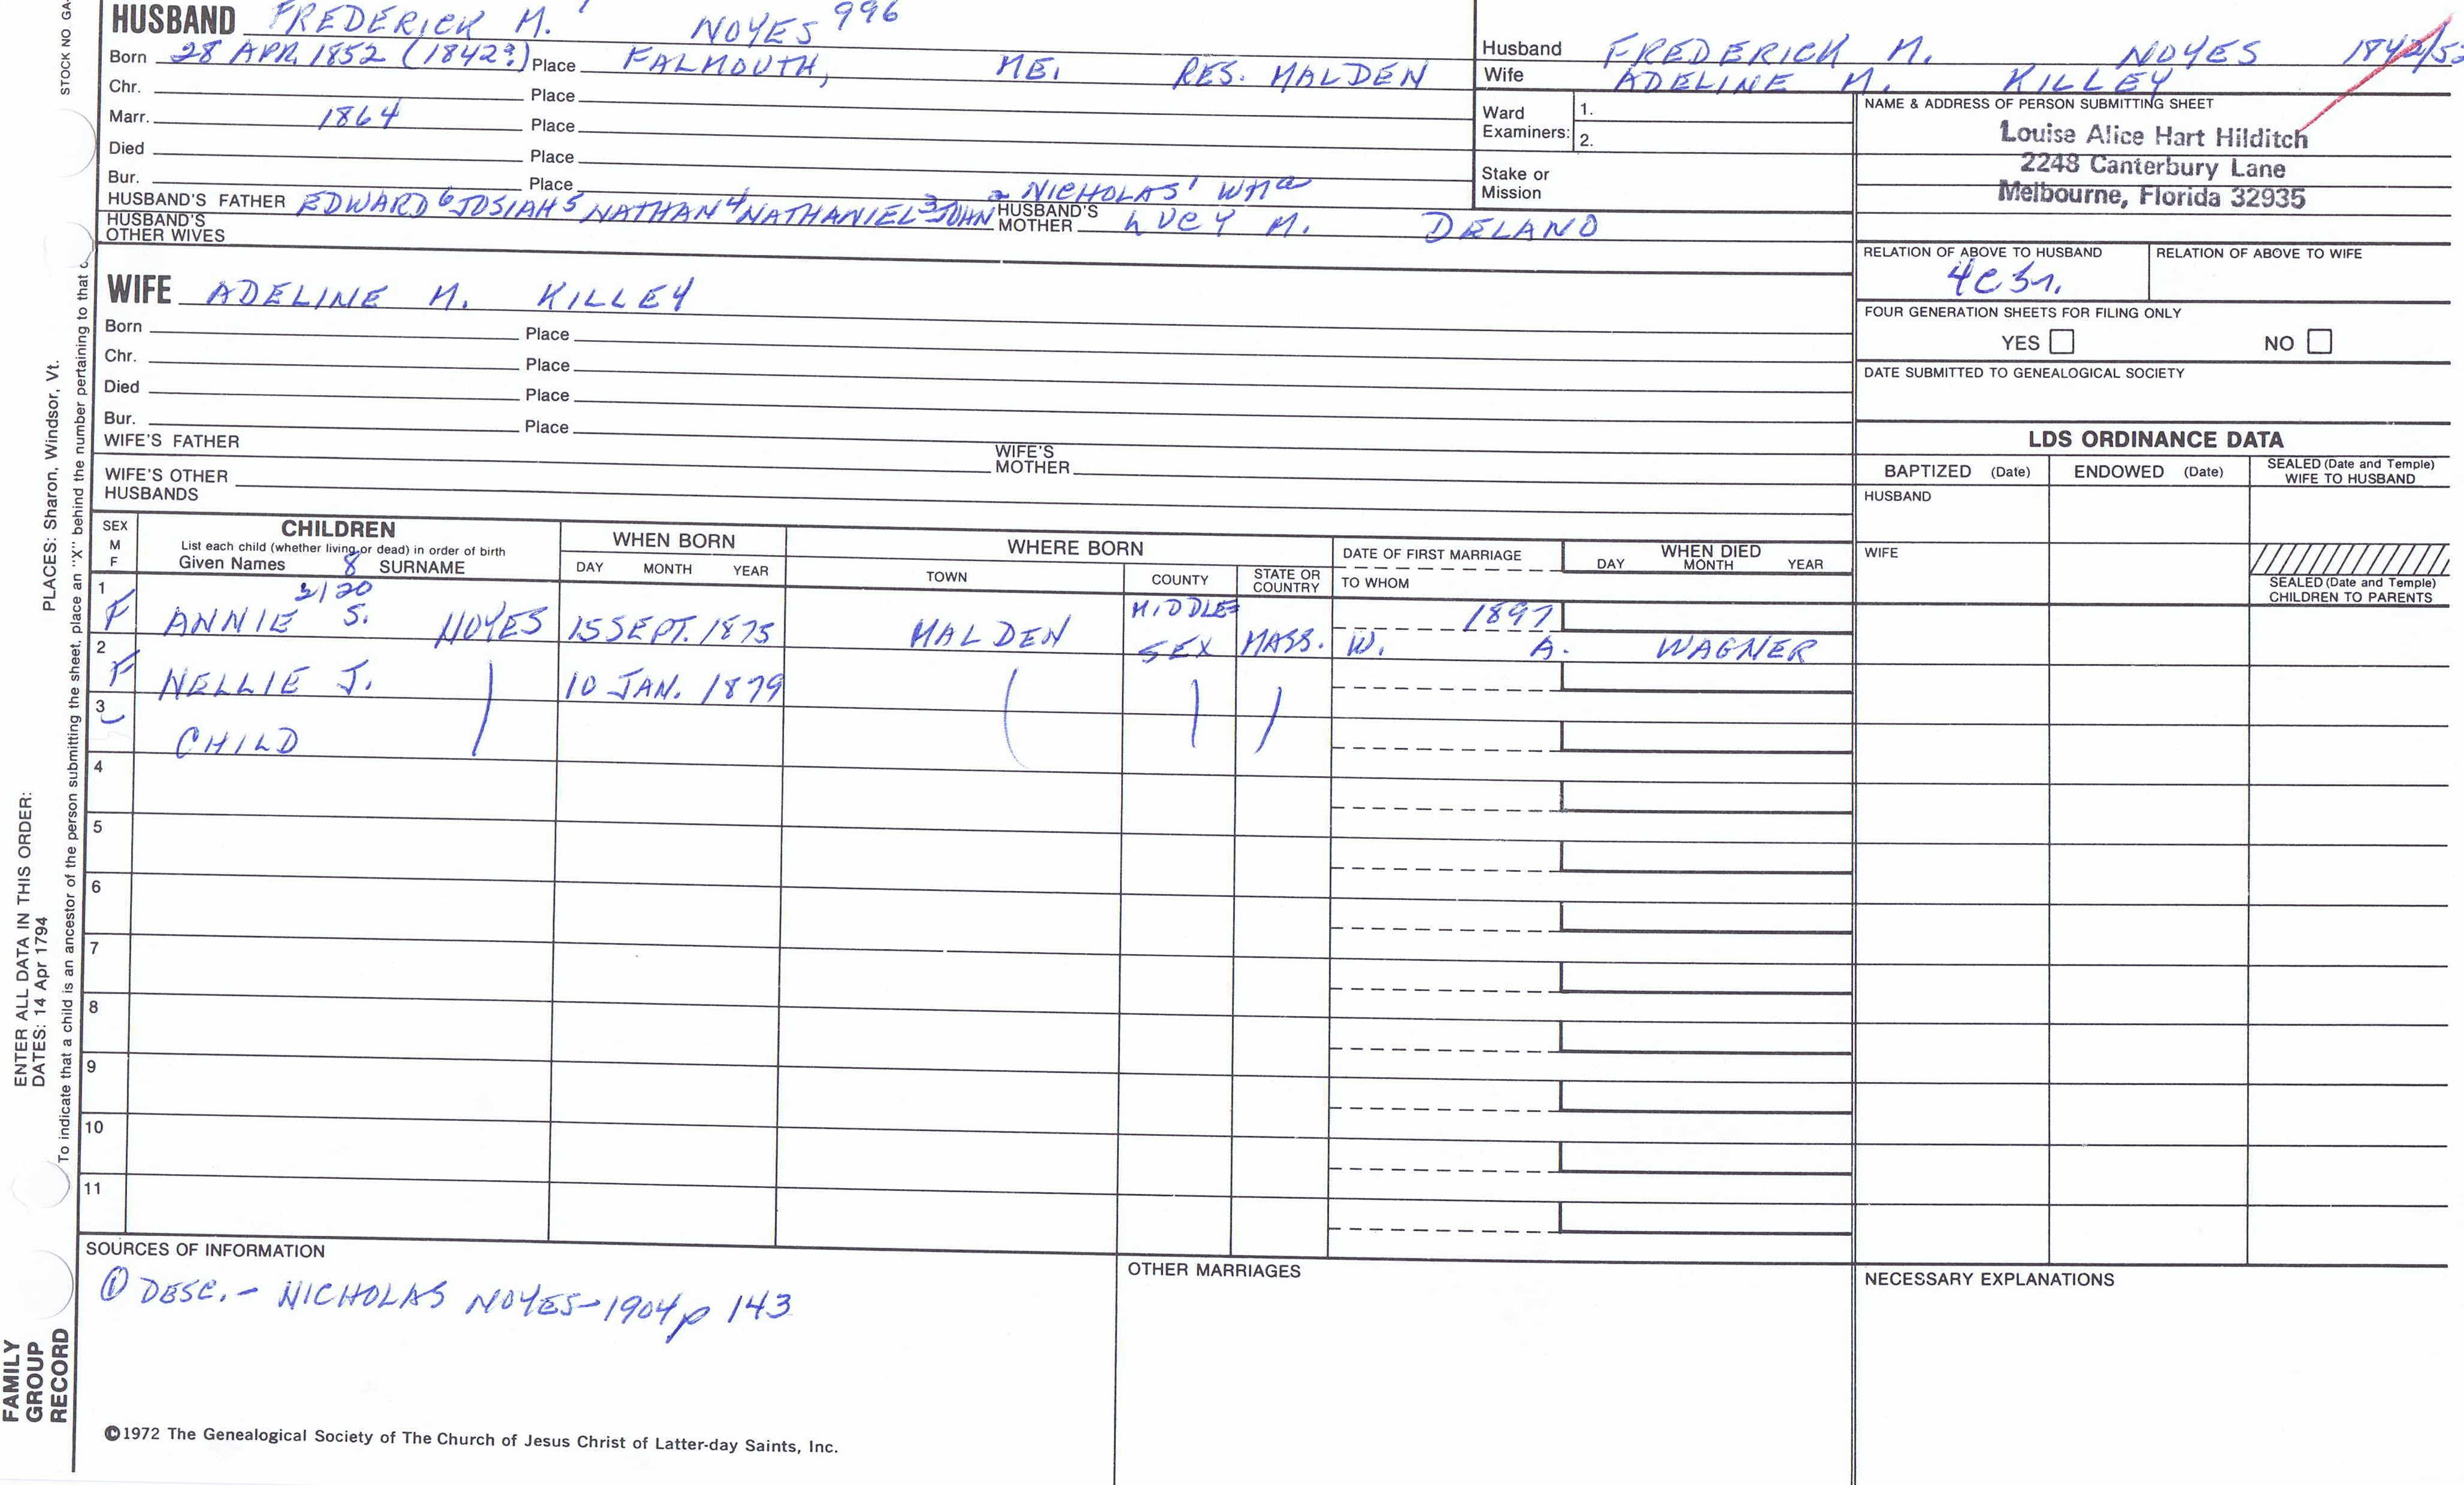 HUSBAND FREDERICK M. 7 NOYES 996
Born 28 APR. 1852 (1842?) Place FALMOUTH, ME. RES. MALDEN
Chr. Place
Marr. 1864 Place
Died Place
Bur. Place
HUSBAND'S FATHER EDWARD 6 JOSIAH 5 NATHAN 4 NATHANIEL 3 JOHN 2 NICHOLAS 1 WM a HUSBAND'S MOTHER LUCY M. DELANO
HUSBAND'S OTHER WIVES
WIFE ADELINE M. KILLEY
Born Place
Chr. Place
Died Place
Bur. Place
WIFE'S FATHER WIFE'S MOTHER
WIFE'S OTHER HUSBANDS
Husband FREDERICK M. NOYES 1842/52
Wife ADELINE M. KILLEY
Ward Examiners: 1.
2.
Stake or Mission
NAME & ADDRESS OF PERSON SUBMITTING SHEET
Louise Alice Hart Hilditch
2248 Canterbury Lane
Melbourne, Florida 32935
RELATION OF ABOVE TO HUSBAND RELATION OF ABOVE TO WIFE
FOUR GENERATION SHEETS FOR FILING ONLY
YES NO
DATE SUBMITTED TO GENEALOGICAL SOCIETY
LDS ORDINANCE DATA
BAPTIZED (Date) ENDOWED (Date) SEALED (Date and Temple) WIFE TO HUSBAND
HUSBAND
WIFE
SEALED (Date and Temple) CHILDREN TO PARENTS
SEX M F
CHILDREN
List each child (whether living or dead) in order of birth
Given Names 8 SURNAME
WHEN BORN
DAY MONTH YEAR
WHERE BORN
TOWN COUNTY STATE OR COUNTRY
DATE OF FIRST MARRIAGE
TO WHOM
WHEN DIED
DAY MONTH YEAR
1 F ANNIE S. NOYES 15 SEPT. 1875 MALDEN MIDDLESEX MASS. 1897 W. A. WAGNER
2 F NELLIE J. 10 JAN. 1879
3 CHILD
4
5
6
7
8
9
10
11
SOURCES OF INFORMATION
① DESC. - NICHOLAS NOYES - 1904 p 143
OTHER MARRIAGES
NECESSARY EXPLANATIONS
©1972 The Genealogical Society of The Church of Jesus Christ of Latter-day Saints, Inc.
STOCK NO. GA-
PLACES: Sharon, Windsor, Vt.
To indicate that a child is an ancestor of the person submitting the sheet, place an "X" behind the number pertaining to that
ENTER ALL DATA IN THIS ORDER:
DATES: 14 Apr 1794
FAMILY
GROUP
RECORD